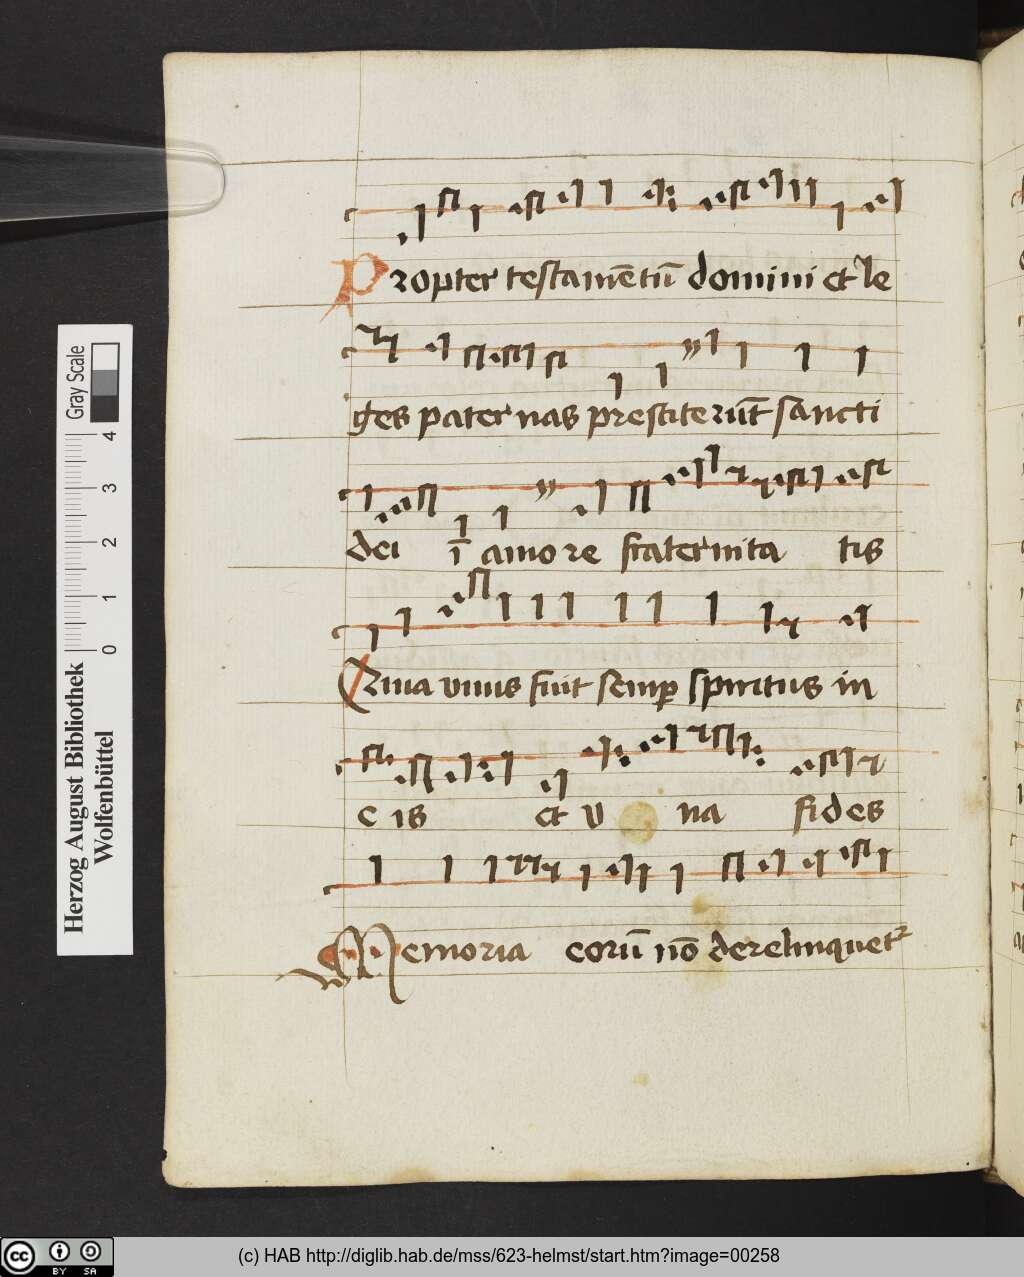 Propter testamētū domini et le
ges paternas prestiterūt sancti
dei ī amore fraternita tis
Quia vnus fuit semp spiritus in
e is et v na fides
Memoria eorū nō derelinquet
Gray Scale
4
3
2
1
0
Herzog August Bibliothek
Wolfenbüttel
cc BY SA
(c) HAB http://diglib.hab.de/mss/623-helmst/start.htm?image=00258